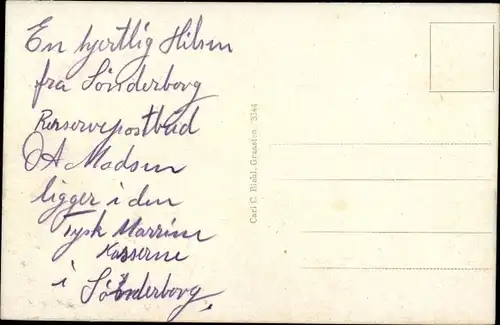 En hjertlig Hilsen
fra Sönderborg
Reservepostbud
A Madsen
ligger i den
Tysk Marrine
Kasserne
i Sönderborg.
Carl C. Biehl, Graasten. 3344